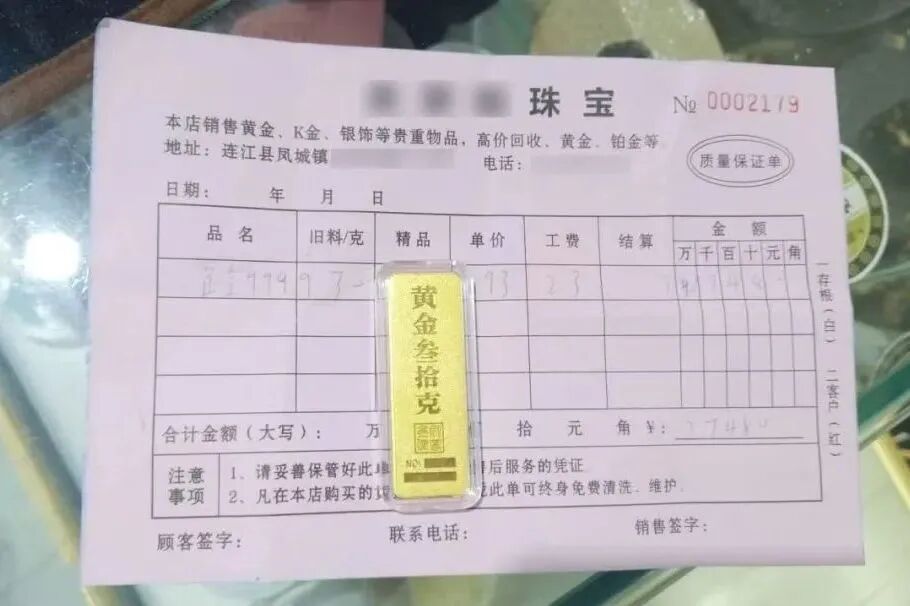 珠宝 № 0002179
本店销售黄金、K金、银饰等贵重物品，高价回收、黄金、铂金等
地址：连江县凤城镇 电话：
质量保证单
日期： 年 月 日
品名 旧料/克 精品 单价 工费 结算 金额
万 千 百 十 元 角
999 93 23
合计金额（大写）： 万 拾 元 角 ¥：
注意事项
1、请妥善保管好此单 售后服务的凭证
2、凡在本店购买的 此单可终身免费清洗、维护.
顾客签字： 联系电话： 销售签字：
一存根（白） 二客户（红）
黄金叁拾克
NO: